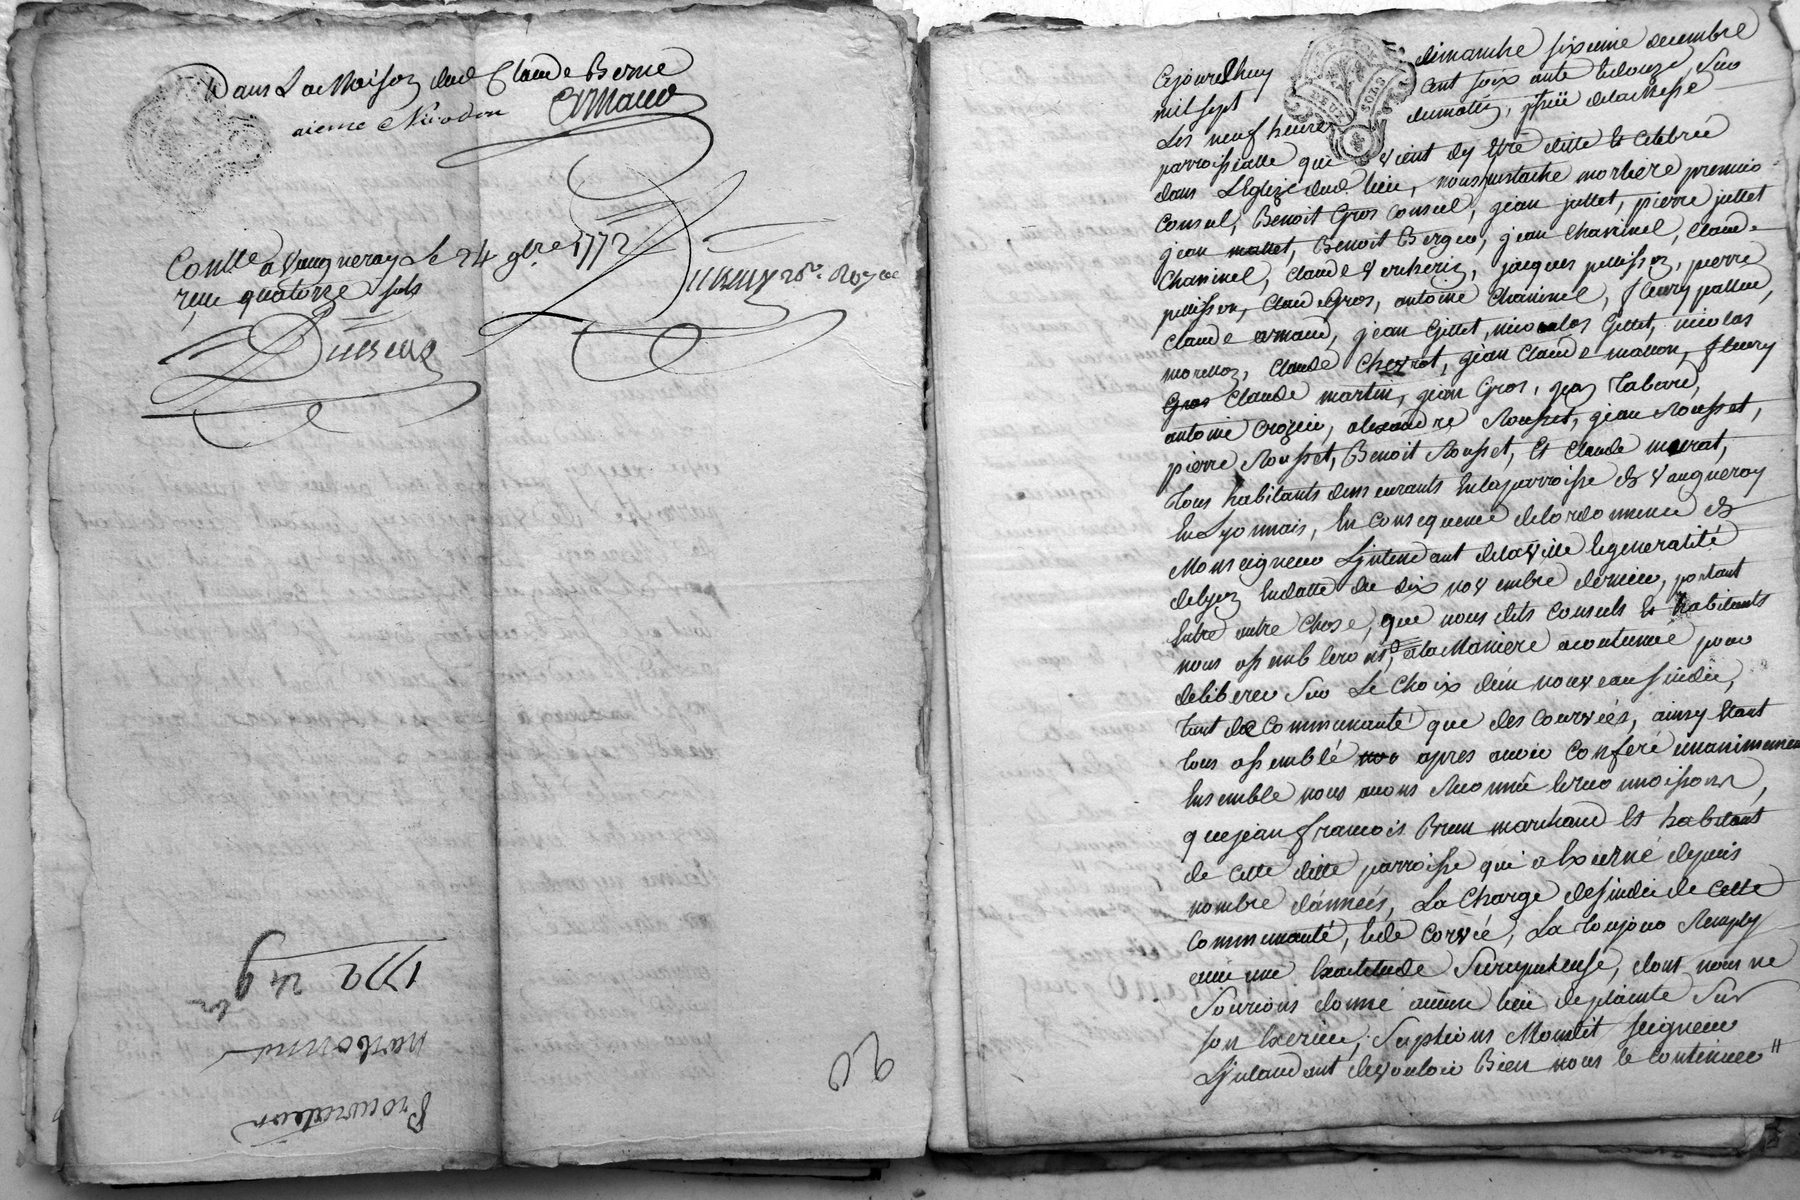 Dans La Maison dud Claude Berne
aieme Nicodon Armand
Conlle a Vaugneray Le 24 9bre 1772
reçu quatorze sols
1772 24 9bre
narbonne
Procuration
20
Cejourdhuy dimanche sixieme decembre
mil sept cent soix ante et douze, sur
Les neuf heures du matin, issüe de la messe
parroissialle qui vient dy Etre ditte et Celebrée
dans LEglize dud. lieu, nous Eustache morliere premier
Consul, Benoit Gros Consul, jean jullet, pierre jullet
jean mallet, Benoit Berger, jean Chaninel, Claude
Chaninel, Claude Verherin, jacques pellisson, pierre
pellisson, Claude Gros, antoine Chaninel, fleury pallue,
Claude armand, jean Gillet, nicoulas Gillet, nicolas
morellon, Claude Chevrot, jean Claude mallon, fleury
Gros Claude martin, jean Gros, jean Tabard,
antoine Crozier, alexandre Rousset, jean Rousset,
pierre Rousset, Benoit Rousset, Et Claude murat,
Tous habitants demeurants En la parroisse de Vaugneray
En Lyonnais, En Consequence de lordonnence de
Monseigneur Ljntendant de la Ville Et generalité
de Lyon En datte du dix novembre dernier, portant
Entre autre Chose, que nous dits Consuls Et habitants
nous assemblerons, a la Maniere acoutumée pour
deliberer Sur Le Choix dun nouveau sindic,
Tant de Communauté que des Corvées, ainsy Etant
tous assemblé apres avoir Conferé unanimement
Ensemble nous avons Reconnu Et reconnoissons,
que jean francois Brun marchand Et habitant
de Cette ditte parroisse qui a Exercé depuis
nombre dannées, La Charge de sindic de Cette
Communauté, Et de Corvée, La Toujour Remply
avec une Exactitude Scrupuleuse, dont nous ne
Scurions donné aucun lieu de plainte Sur
son Exercice, Suplions Mondit seigneur
Ljntandant de vouloir Bien nous le Continuer